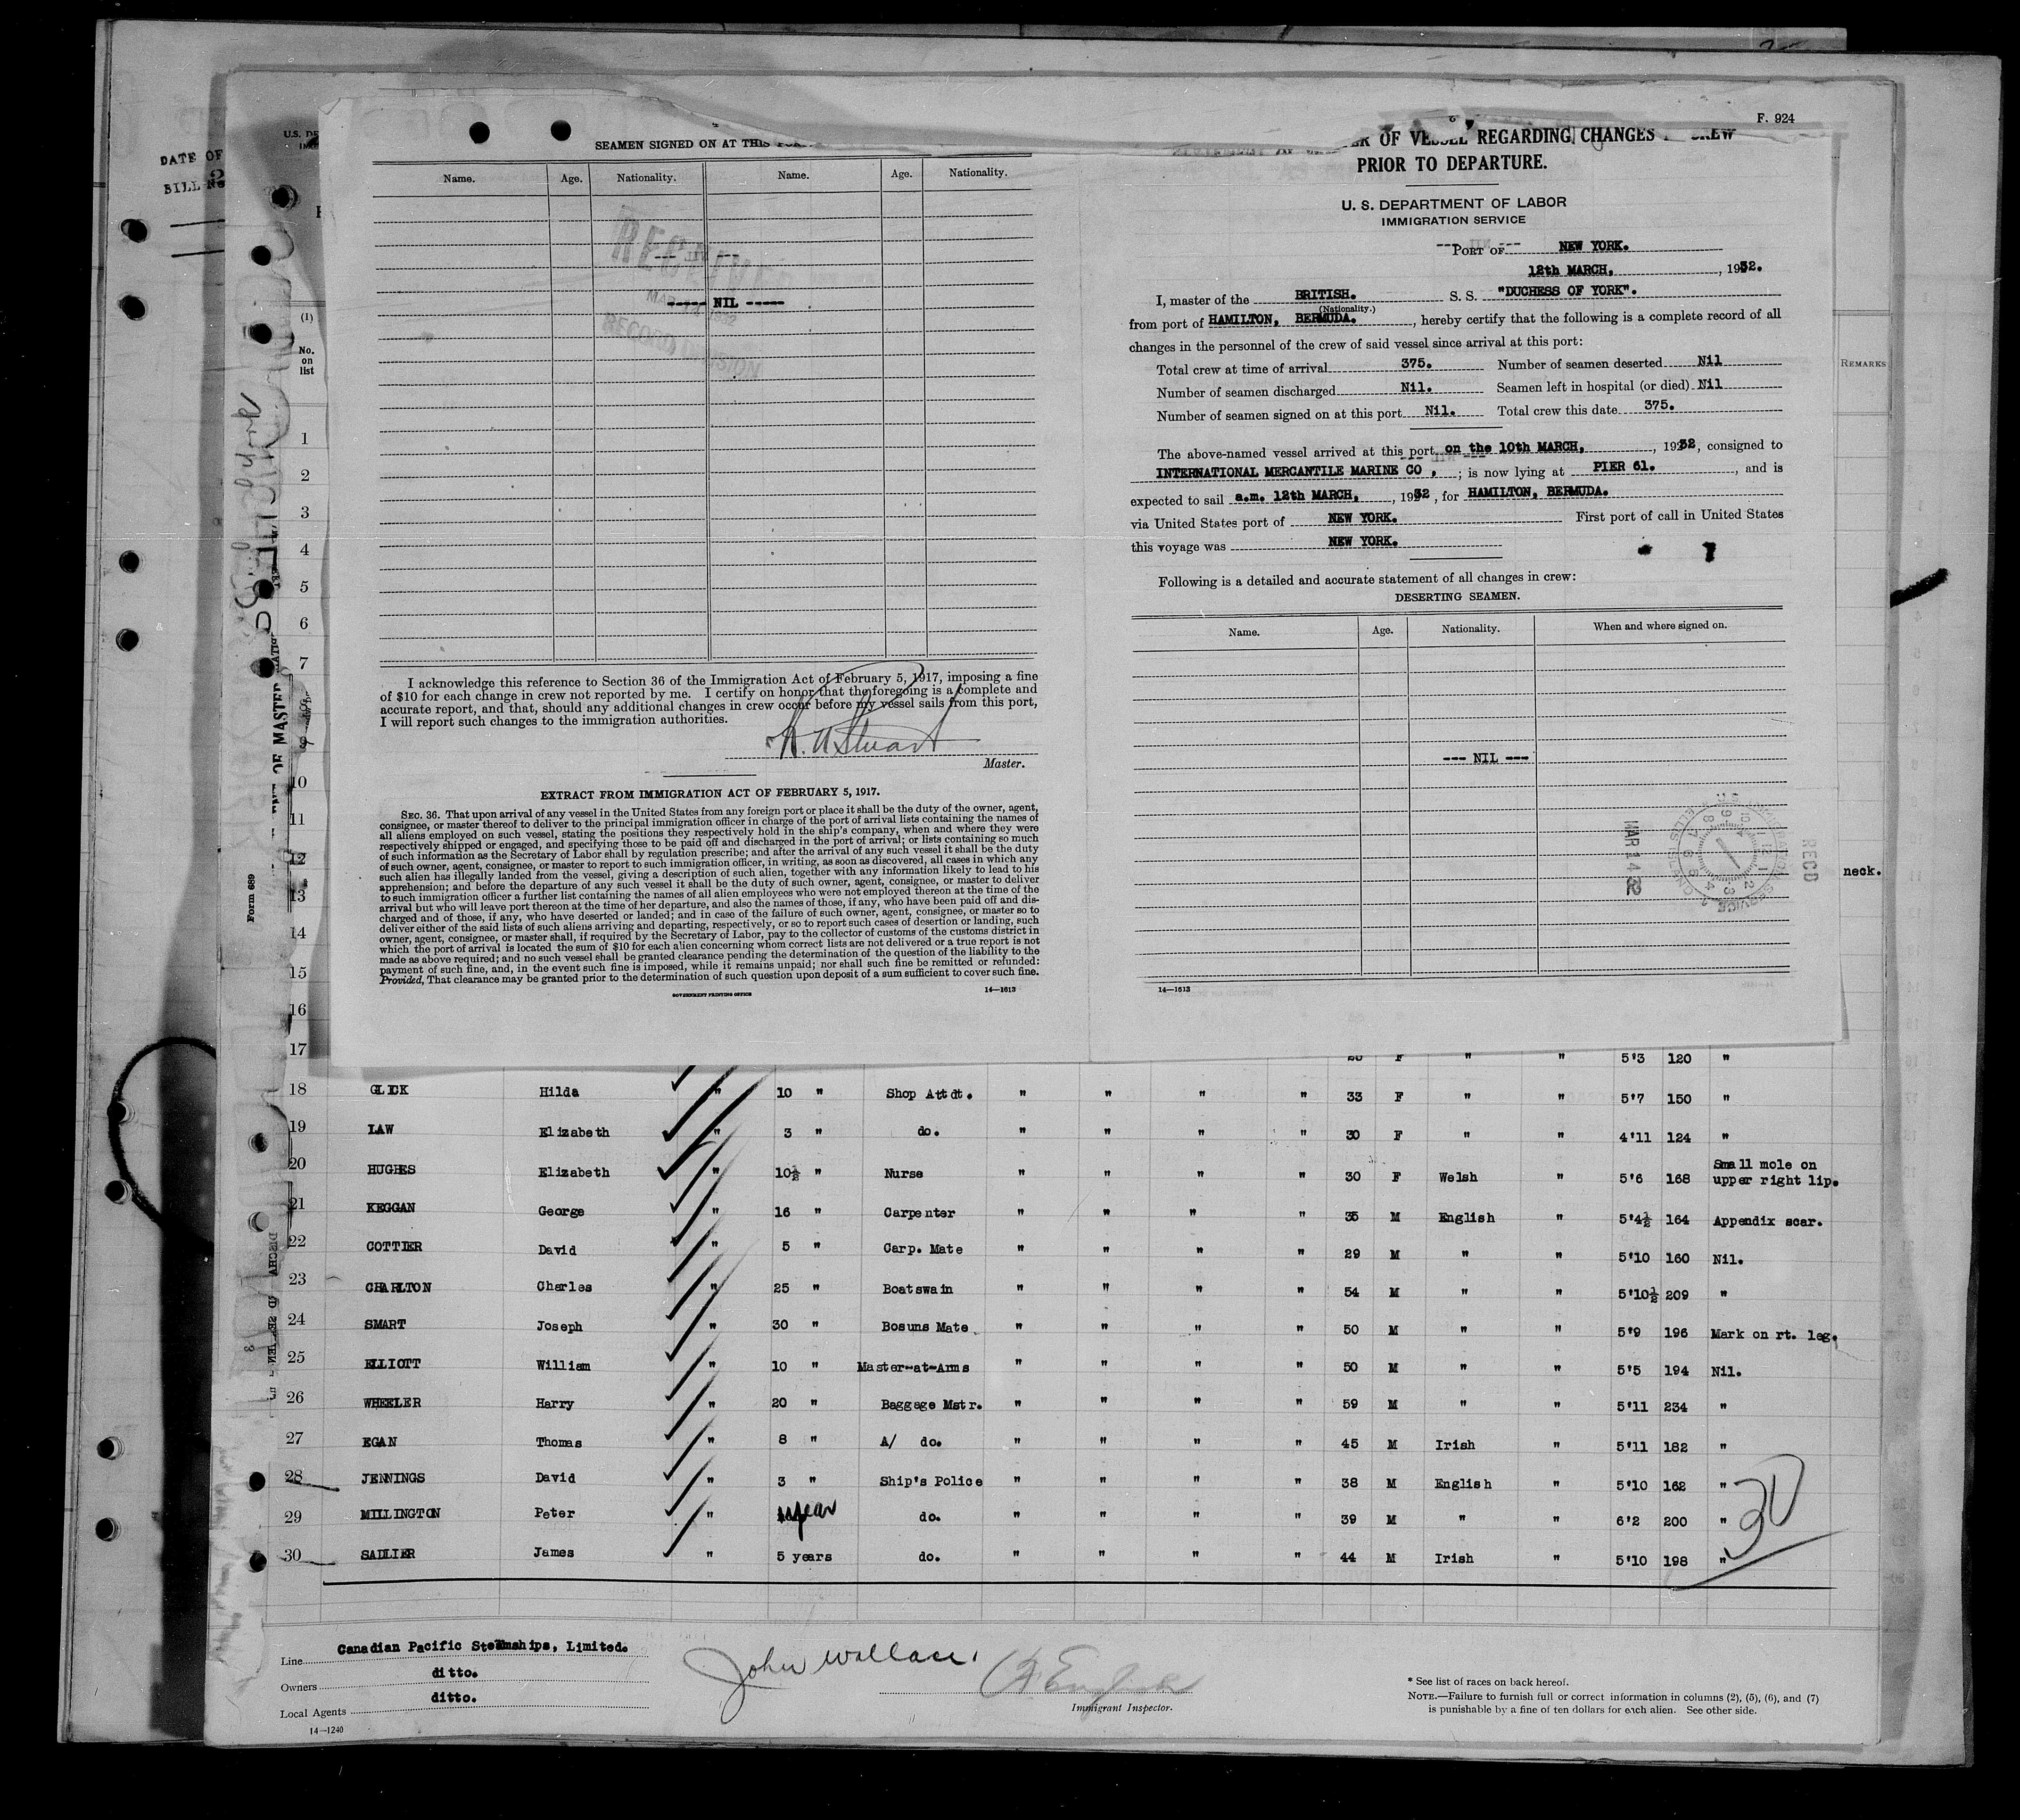 F. 924
DATE OF
BILL No
U.S. DE
SEAMEN SIGNED ON AT THIS
Name. Age. Nationality. Name. Age. Nationality.
--- NIL ---
RECEIVED
----- NIL -----
RECORD DIVISION
I acknowledge this reference to Section 36 of the Immigration Act of February 5, 1917, imposing a fine
of $10 for each change in crew not reported by me. I certify on honor that the foregoing is a complete and
accurate report, and that, should any additional changes in crew occur before my vessel sails from this port,
I will report such changes to the immigration authorities.
Stuart
Master.
EXTRACT FROM IMMIGRATION ACT OF FEBRUARY 5, 1917.
SEC. 36. That upon arrival of any vessel in the United States from any foreign port or place it shall be the duty of the owner, agent,
consignee, or master thereof to deliver to the principal immigration officer in charge of the port of arrival lists containing the names of
all aliens employed on such vessel, stating the positions they respectively hold in the ship's company, when and where they were
respectively shipped or engaged, and specifying those to be paid off and discharged in the port of arrival; or lists containing so much
of such information as the Secretary of Labor shall by regulation prescribe; and after the arrival of any such vessel it shall be the duty
of such owner, agent, consignee, or master to report to such immigration officer, in writing, as soon as discovered, all cases in which any
such alien has illegally landed from the vessel, giving a description of such alien, together with any information likely to lead to his
apprehension; and before the departure of any such vessel it shall be the duty of such owner, agent, consignee, or master to deliver
to such immigration officer a further list containing the names of all alien employees who were not employed thereon at the time of the
arrival but who will leave port thereon at the time of her departure, and also the names of those, if any, who have been paid off and dis-
charged and of those, if any, who have deserted or landed; and in case of the failure of such owner, agent, consignee, or master so to
deliver either of the said lists of such aliens arriving and departing, respectively, or so to report such cases of desertion or landing, such
owner, agent, consignee, or master shall, if required by the Secretary of Labor, pay to the collector of customs of the customs district in
which the port of arrival is located the sum of $10 for each alien concerning whom correct lists are not delivered or a true report is not
made as above required; and no such vessel shall be granted clearance pending the determination of the question of the liability to the
payment of such fine, and, in the event such fine is imposed, while it remains unpaid; nor shall such fine be remitted or refunded:
Provided, That clearance may be granted prior to the determination of such question upon deposit of a sum sufficient to cover such fine.
GOVERNMENT PRINTING OFFICE 14—1613
OF VESSEL REGARDING CHANGES CREW
PRIOR TO DEPARTURE.
U. S. DEPARTMENT OF LABOR
IMMIGRATION SERVICE
PORT OF NEW YORK.
12th MARCH, , 1932.
I, master of the BRITISH. S. S. "DUCHESS OF YORK".
(Nationality.)
from port of HAMILTON, BERMUDA. , hereby certify that the following is a complete record of all
changes in the personnel of the crew of said vessel since arrival at this port:
Total crew at time of arrival 375. Number of seamen deserted Nil
Number of seamen discharged Nil. Seamen left in hospital (or died) Nil
Number of seamen signed on at this port Nil. Total crew this date 375.
The above-named vessel arrived at this port on the 10th MARCH, , 1932, consigned to
INTERNATIONAL MERCANTILE MARINE CO , ; is now lying at PIER 61. , and is
expected to sail a.m. 12th MARCH, , 1932 , for HAMILTON, BERMUDA.
via United States port of NEW YORK. First port of call in United States
this voyage was NEW YORK.
Following is a detailed and accurate statement of all changes in crew:
DESERTING SEAMEN.
Name. Age. Nationality. When and where signed on.
--- NIL ---
REC'D
MAR 14 32
14—1613
REMARKS
neck.
(1)
No.
on
list
1
2
3
4
5
6
7
8
9
10
11
12
13
14
15
16
Form 689
OF MASTER
17 F " " 5'3 120 "
18 GLICK Hilda " 10 " Shop Attdt. " " " " 33 F " " 5'7 150 "
19 LAW Elizabeth " 3 " do. " " " " 30 F " " 4'11 124 "
20 HUGHES Elizabeth " 10½ " Nurse " " " " 30 F Welsh " 5'6 168 Small mole on
upper right lip.
21 KEGGAN George " 16 " Carpenter " " " " 35 M English " 5'4½ 164 Appendix scar.
22 COTTIER David " 5 " Carp. Mate " " " " 29 M " " 5'10 160 Nil.
23 CHARLTON Charles " 25 " Boatswain " " " " 54 M " " 5'10½ 209 "
24 SMART Joseph " 30 " Bosuns Mate " " " " 50 M " " 5'9 196 Mark on rt. leg.
25 ELLIOTT William " 10 " Master-at-Arms " " " " 50 M " " 5'5 194 Nil.
26 WHEELER Harry " 20 " Baggage Mstr. " " " " 59 M " " 5'11 234 "
27 EGAN Thomas " 8 " A/ do. " " " " 45 M Irish " 5'11 182 "
28 JENNINGS David " 3 " Ship's Police " " " " 38 M English " 5'10 162 "
29 MILLINGTON Peter " year do. " " " " 39 M " " 6'2 200 "
30 SADLIER James " 5 years do. " " " " 44 M Irish " 5'10 198 "
30
Line Canadian Pacific Steamships, Limited.
Owners ditto.
Local Agents ditto.
14—1240
John Wallace
Immigrant Inspector.
* See list of races on back hereof.
NOTE.—Failure to furnish full or correct information in columns (2), (5), (6), and (7)
is punishable by a fine of ten dollars for each alien. See other side.